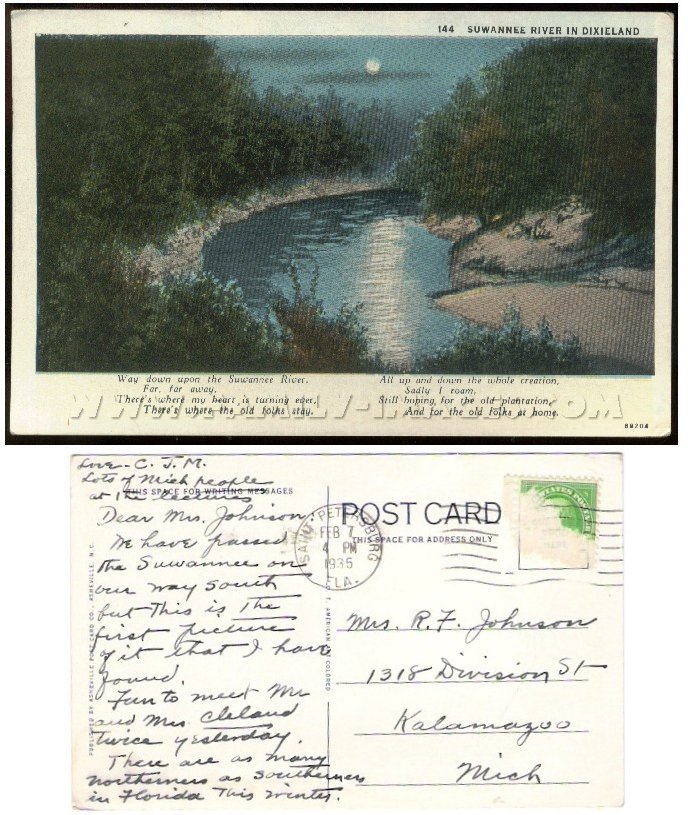 144 SUWANNEE RIVER IN DIXIELAND
Way down upon the Suwannee River,
Far, far away,
There's where my heart is turning ever,
There's where the old folks stay.
All up and down the whole creation,
Sadly I roam,
Still hoping for the old plantation,
And for the old folks at home.
Love - C. J. M.
Lots of Mich people
at the lectures
THIS SPACE FOR WRITING MESSAGES
Dear Mrs. Johnson,
We have passed
the Suwannee on
our way south
but this is the
first picture
of it that I have
found.
Fun to meet Mr
and Mrs Cleland
twice yesterday.
There are as many
northerners as Southerners
in Florida this winter.
PUBLISHED BY ASHEVILLE POST CARD CO., ASHEVILLE, N.C.
AMERICAN COLORED
SAINT PETERSBURG
FEB 7
4 PM
1935
FLA.
POST CARD
THIS SPACE FOR ADDRESS ONLY
Mrs. R. F. Johnson
1318 Division St
Kalamazoo
Mich